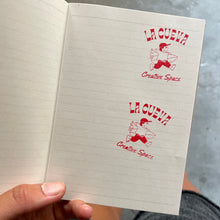 LA CUEVA
Creative Space
LA CUEVA
Creative Space